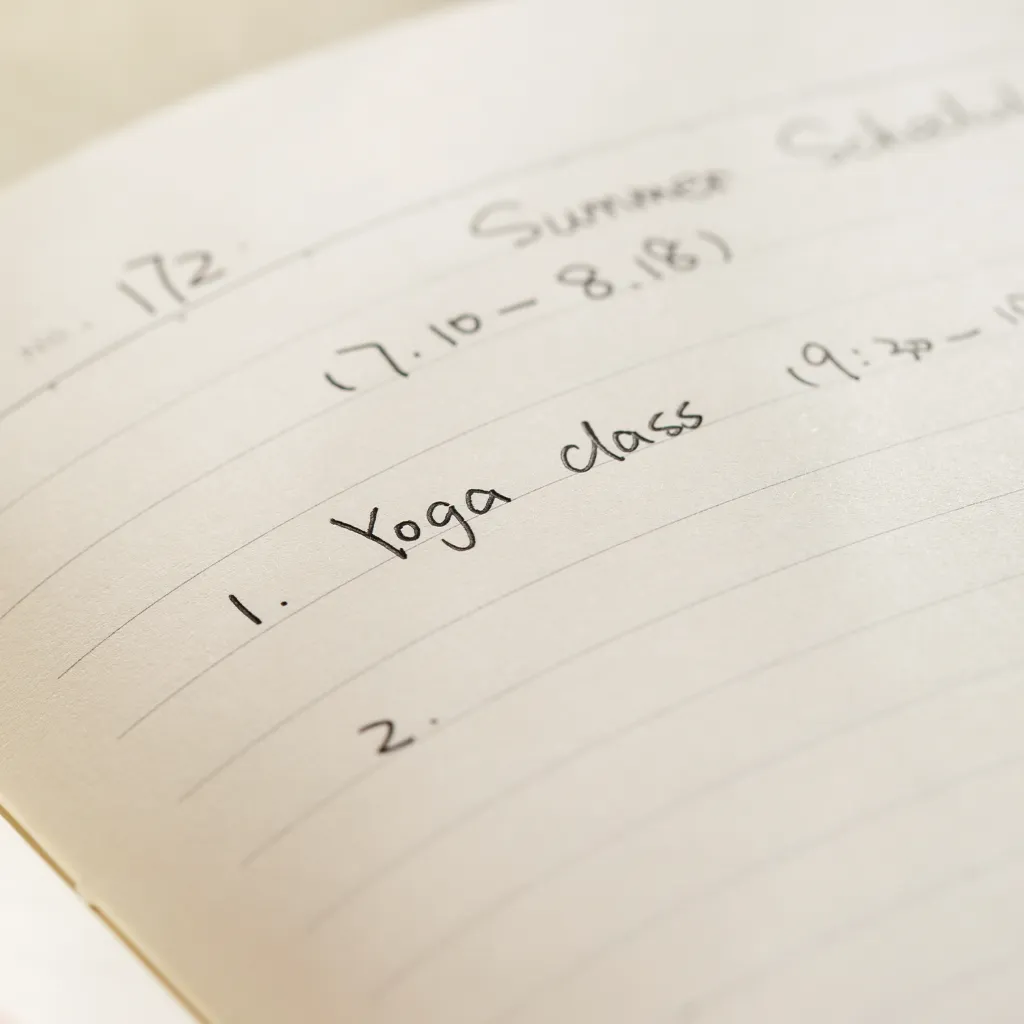 no. 172
Summer
(7.10 - 8.18)
1. Yoga class (9:30 -
2.